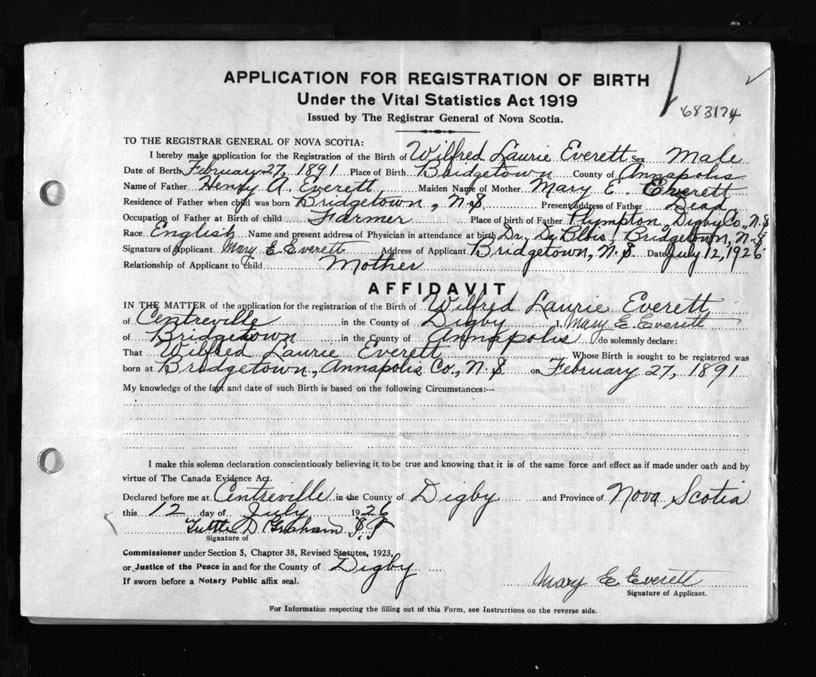 APPLICATION FOR REGISTRATION OF BIRTH
Under the Vital Statistics Act 1919
Issued by The Registrar General of Nova Scotia.
683174
TO THE REGISTRAR GENERAL OF NOVA SCOTIA:
I hereby make application for the Registration of the Birth of Wilfred Laurie Everett Sex Male
Date of Birth February 27, 1891 Place of Birth Bridgetown County of Annapolis
Name of Father Henry A. Everett Maiden Name of Mother Mary E. Everett
Residence of Father when child was born Bridgetown, N.S Present Address of Father Dead
Occupation of Father at Birth of child Farmer Place of birth of Father Plympton, Digby Co., N.S
Race English Name and present address of Physician in attendance at birth Dr. De Blois, Bridgetown, N.S
Signature of Applicant Mary E. Everett Address of Applicant Bridgetown, N.S. Date July 12, 1926
Relationship of Applicant to child Mother
AFFIDAVIT
IN THE MATTER of the application for the registration of the Birth of Wilfred Laurie Everett
of Centreville in the County of Digby I, Mary E. Everett
of Bridgetown in the County of Annapolis do solemnly declare:
That Wilfred Laurie Everett Whose Birth is sought to be registered was
born at Bridgetown, Annapolis Co., N.S on February 27, 1891
My knowledge of the fact and date of such Birth is based on the following Circumstances:--
I make this solemn declaration conscientiously believing it to be true and knowing that it is of the same force and effect as if made under oath and by
virtue of The Canada Evidence Act.
Declared before me at Centreville in the County of Digby and Province of Nova Scotia
this 12 day of July 1926
D Graham J.P
Signature of
Commissioner under Section 5, Chapter 38, Revised Statutes, 1923,
or Justice of the Peace in and for the County of Digby
If sworn before a Notary Public affix seal.
Mary E. Everett
Signature of Applicant.
For Information respecting the filling out of this Form, see Instructions on the reverse side.